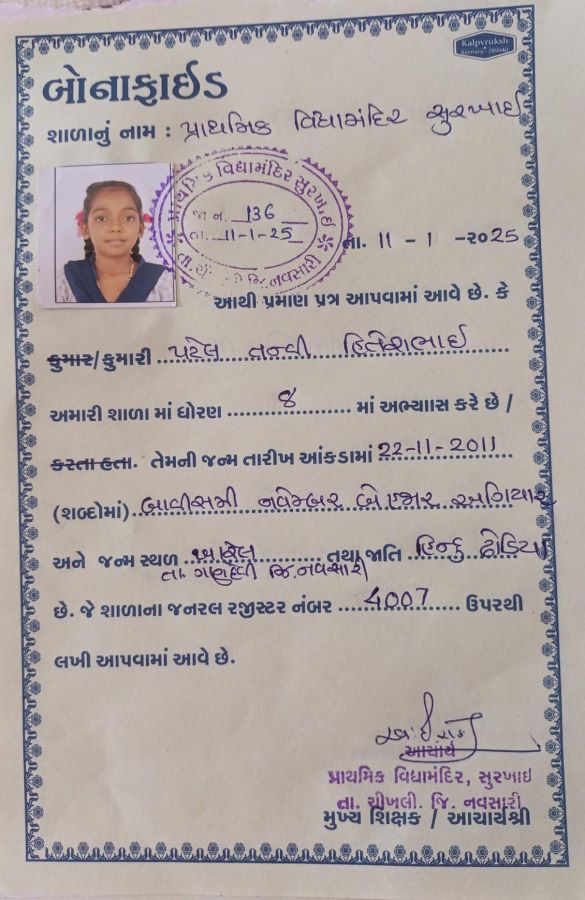 Kalpvruksh
બોનાફાઈડ
શાળાનું નામ : પ્રાથમિક વિદ્યામંદિર સુરખાઈ
પ્રાથમિક વિદ્યામંદિર સુરખાઈ
જા નં. 136
તા. 11-1-25
જિ. નવસારી
તા. 11 - 1 - ૨૦25
આથી પ્રમાણ પત્ર આપવામાં આવે છે. કે
કુમાર/કુમારી પટેલ તન્વી હિતેશભાઈ
અમારી શાળા માં ધોરણ 8 માં અભ્યાસ કરે છે /
કરતા હતા. તેમની જન્મ તારીખ આંકડામાં 22-11-2011
(શબ્દોમાં) બાવીસમી નવેમ્બર બે હજાર અગિયાર
અને જન્મ સ્થળ ખારેલ તથા જાતિ હિન્દુ ઢોડિયા
તા. ગણદેવી જિ. નવસારી
છે. જે શાળાના જનરલ રજીસ્ટર નંબર 4007 ઉપરથી
લખી આપવામાં આવે છે.
આચાર્ય
પ્રાથમિક વિદ્યામંદિર, સુરખાઇ
તા. ચીખલી. જિ. નવસારી
મુખ્ય શિક્ષક / આચાર્યશ્રી